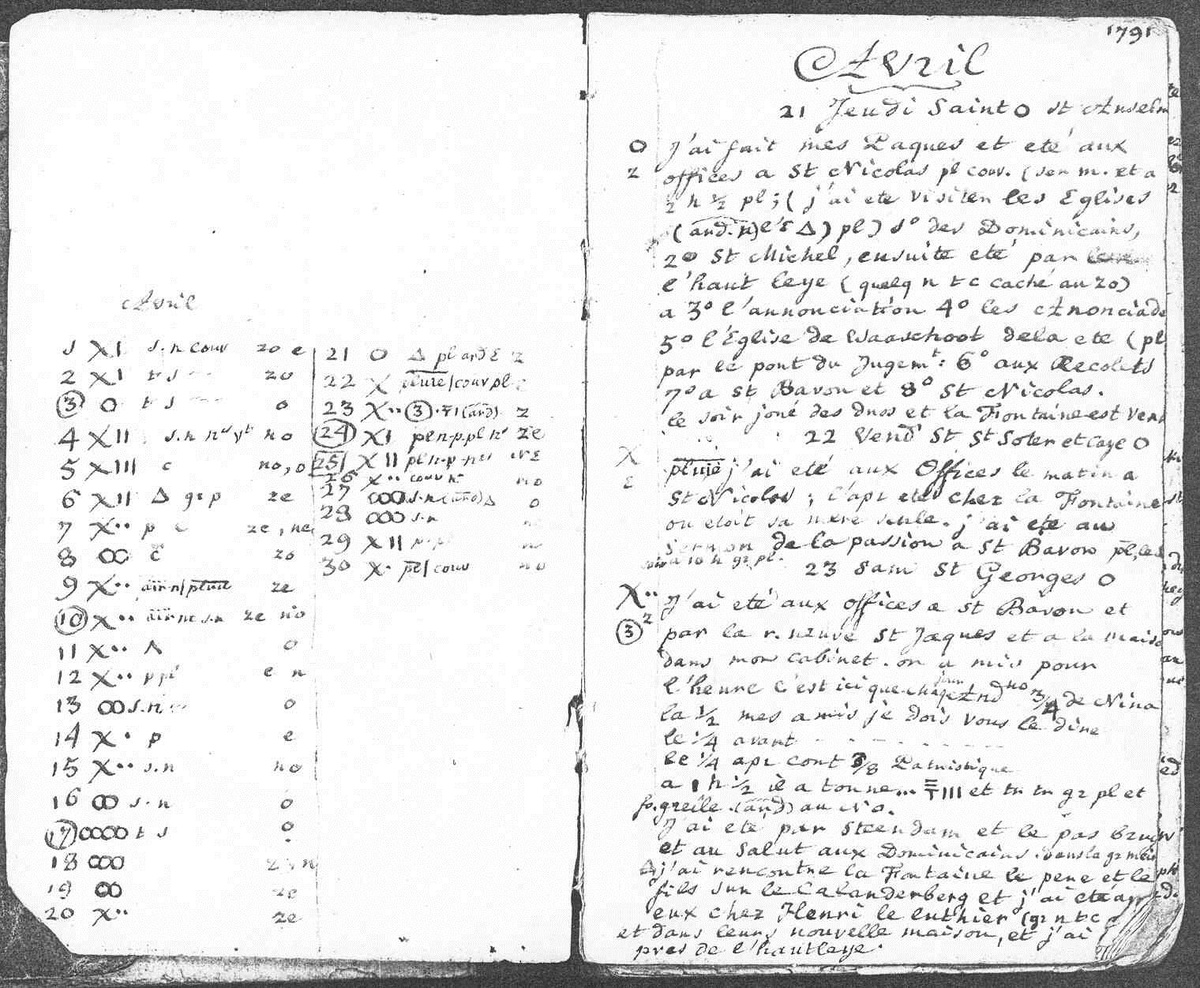 Avril
1 XI s.n couv zo e
2 XI t s zo
3 O t s o
4 XII s.n no
5 XIII c no,o
6 XII Δ gr p ze
7 X·· p c ze, ne
8 OO c zo
9 X·· air n/pluie ze
10 X·· air nc s.n ze no
11 X·· Λ o
12 X·· e n
13 OO s.n o
14 X· p e
15 X·· s.n no
16 OO s.n o
17 OOOO t s o
18 OOO
19 OO ze
20 X·· ze
21 O Δ pl ard E z
22 X pluie/couv pl
23 X·· 3 (ard) z
24 XI pl n.p.pl ze
25 XII pl n.p
26 X·· couv no
27 OOO s.n (ard) Δ o
28 OOO s.n
29 XII p.p
30 X· pl/couv no
1791
Avril
21 Jeudi Saint O st Anselm
O J'ai fait mes Paques et eté aux
z offices a St Nicolas pl couv. (ser m. et a
2 h ½ pl; (j'ai ete visiter les Eglises
(and.n) Δ) pl) 1º des Dominicains,
2º St Michel, ensuite eté par
l'haut leye (quelq n t c caché au zo)
a 3º l'annonciation 4º les Anonciade
5º l'Eglise de Waaschoot dela ete (pl
par le pont du Jugemt: 6º aux Recolets
7º a St Bavon et 8º St Nicolas.
le soir joué des duos et la Fontaine est ven
22 Vend St St Soter et Caye O
X pluie j'ai eté aux Offices le matin a
E St Nicolas; l'apr eté chez la Fontaine
ou etoit sa mere seule. j'ai eté au
sermon de la passion a St Bavon pl, les
a 10 h gr pl.
23 Sam St Georges O
X·· J'ai eté aux offices a St Bavon et
3 z par la r. neuve St Jaques et a la mais
dans mon cabinet. on a mis pour
l'heure C'est ici que And no ¾ de Nina
la ½ mes amis je dois vous le dine
le ¼ avant - - - - - - - -
le ¼ apr cont 3/8 Patriotique
a 1 h ½ il a tonne... III et tn tn gr pl et
fo. greile. (and) au No.
J'ai eté par Steendam et le pas
et au Salut aux Dominicains. dans le gr
Δ j'ai rencontre la Fontaine le pere et le
fils sur le Calanderberg et j'ai eté apr
eux chez Henri le luthier (gr n t c
et dans leurs nouvelle maison, et j'ai
pres de l'hautleye.